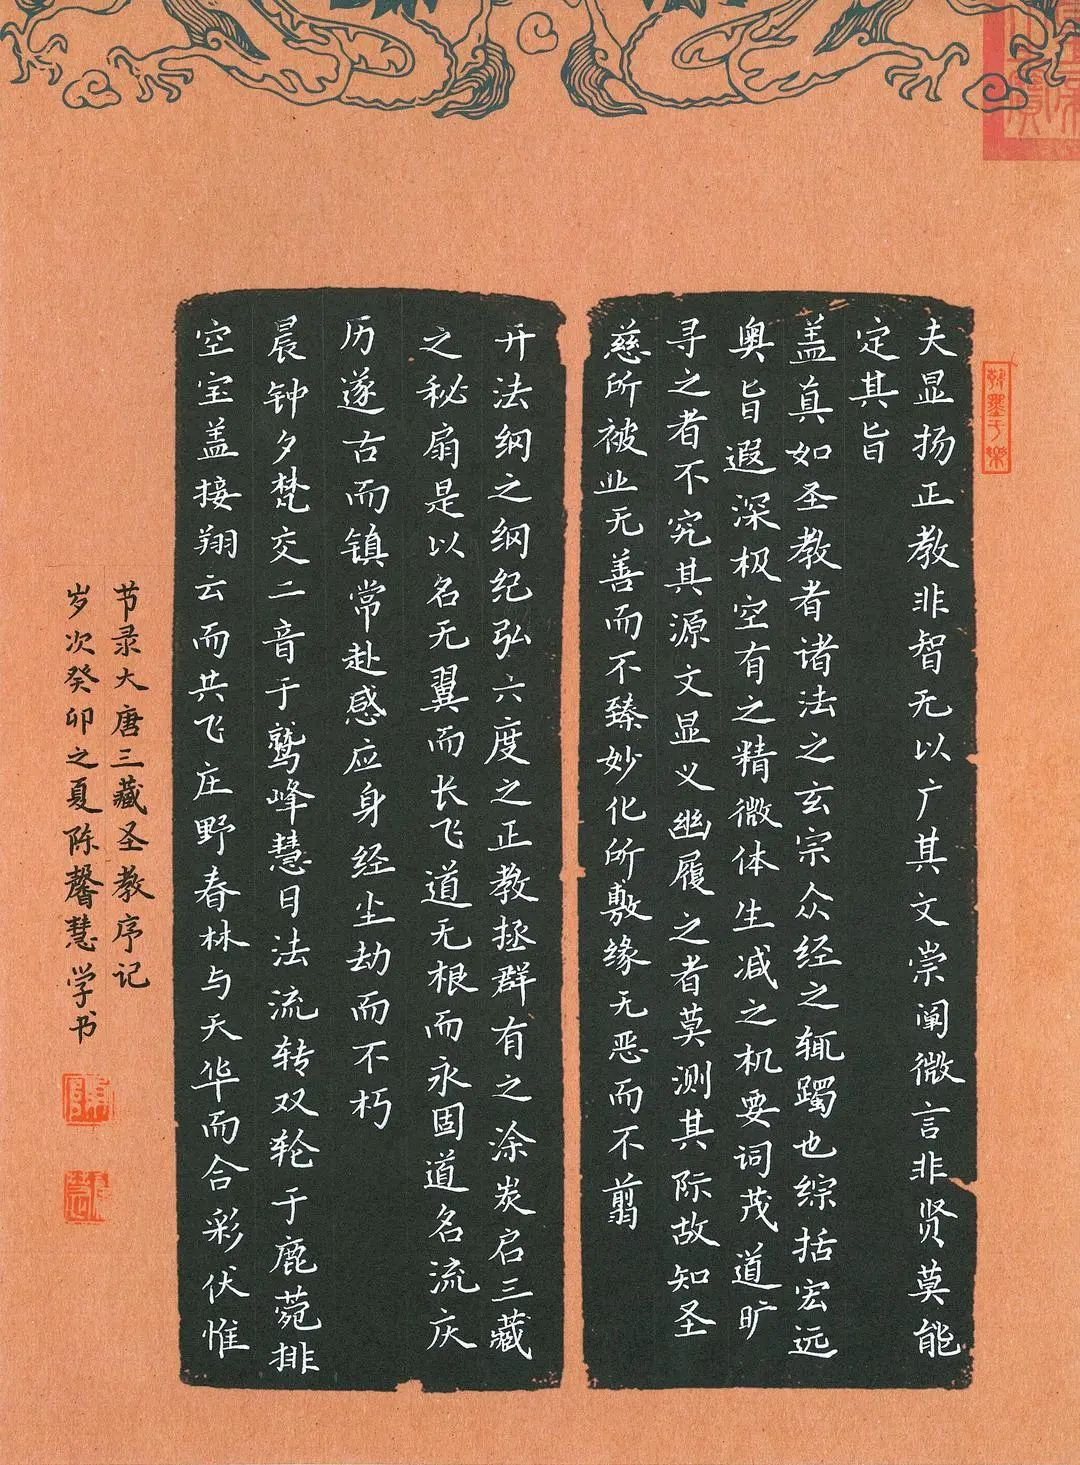 夫显扬正教非智无以广其文崇阐微言非贤莫能
定其旨
盖真如圣教者诸法之玄宗众经之辄躅也综括宏远
奥旨遐深极空有之精微体生减之机要词茂道旷
寻之者不究其源文显义幽履之者莫测其际故知圣
慈所被业无善而不臻妙化所敷缘无恶而不翦
开法纲之纲纪弘六度之正教拯群有之涂炭启三藏
之秘扇是以名无翼而长飞道无根而永固道名流庆
历遂古而镇常赴感应身经尘劫而不朽
晨钟夕梵交二音于鹫峰慧日法流转双轮于鹿菀排
空宝盖接翔云而共飞庄野春林与天华而合彩伏惟
节录大唐三藏圣教序记
岁次癸卯之夏陈馨慧学书